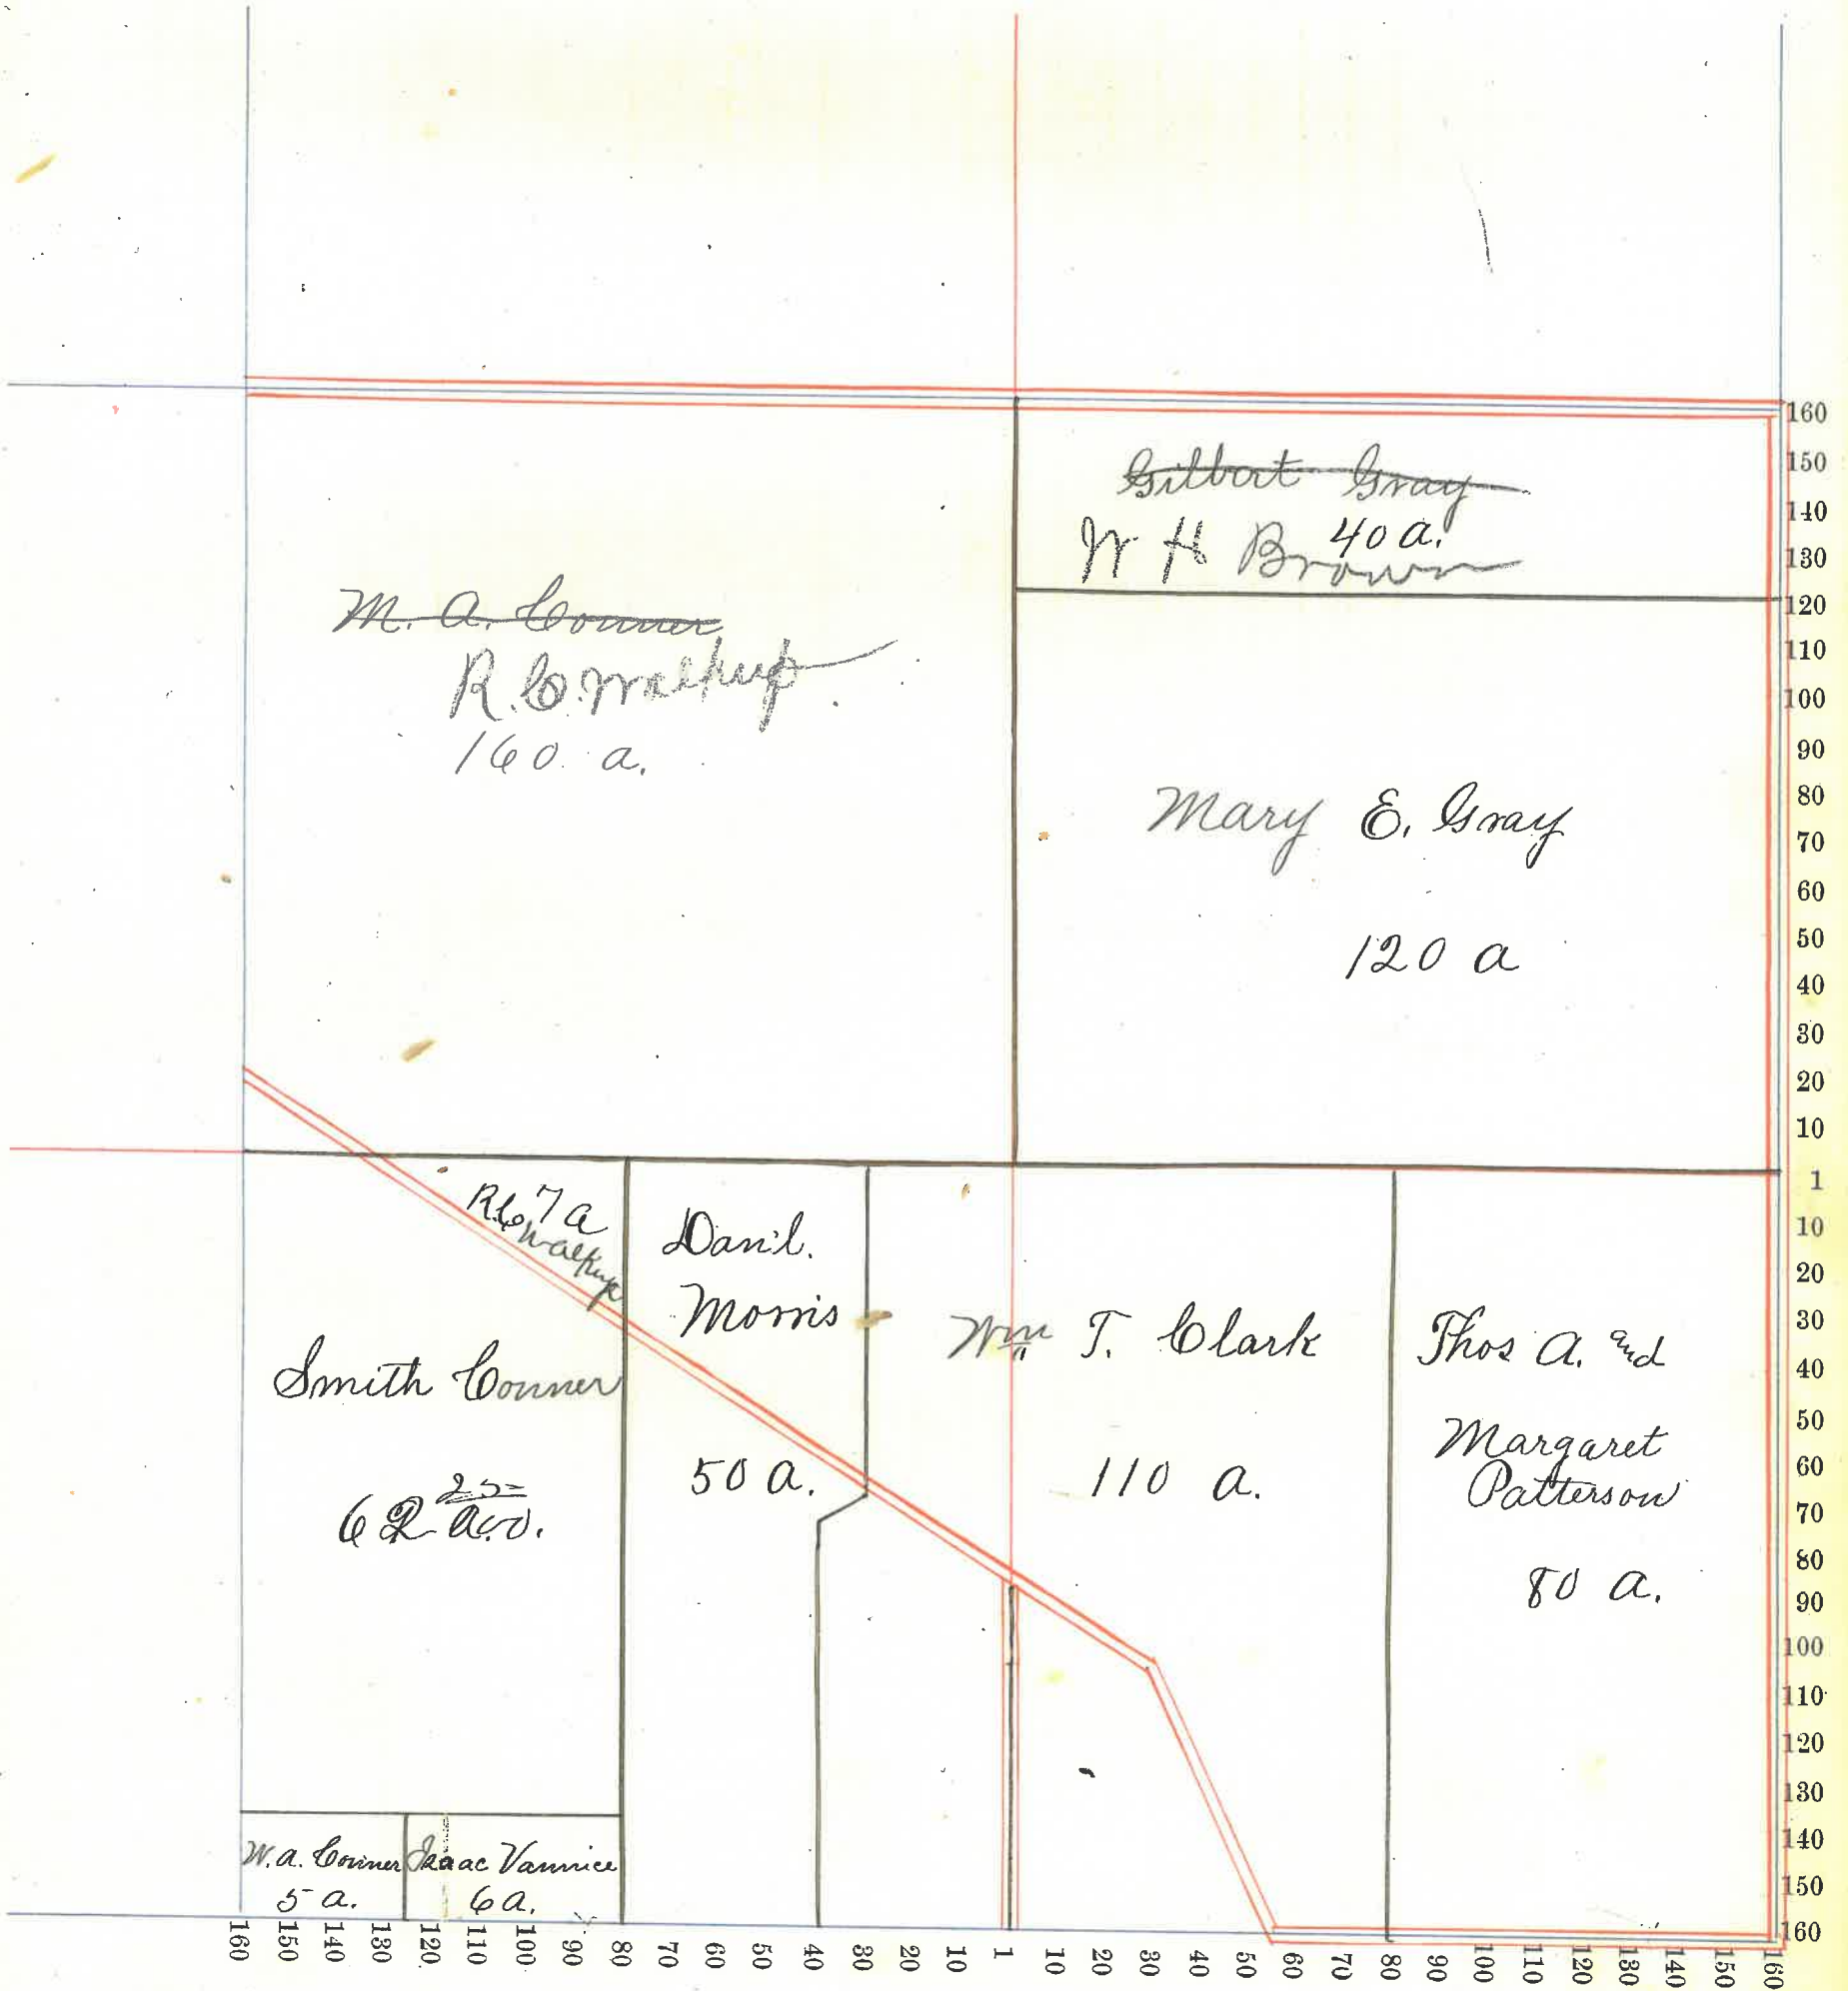 Gilbert Gray
40 a.
W H Brown
M. A. Conner
R. C. Walkup
160 a.
Mary E. Gray
120 a
R. C. 7 a
Walkup
Dan'l.
Morris
50 a.
Smith Conner
62 25
Wm T. Clark
110 a.
Thos A. and
Margaret
Patterson
80 a.
W. A. Conner
5 a.
Isaac Vannice
6 a.
160
150
140
130
120
110
100
90
80
70
60
50
40
30
20
10
1
10
20
30
40
50
60
70
80
90
100
110
120
130
140
150
160
160 150 140 130 120 110 100 90 80 70 60 50 40 30 20 10 1 10 20 30 40 50 60 70 80 90 100 110 120 130 140 150 160